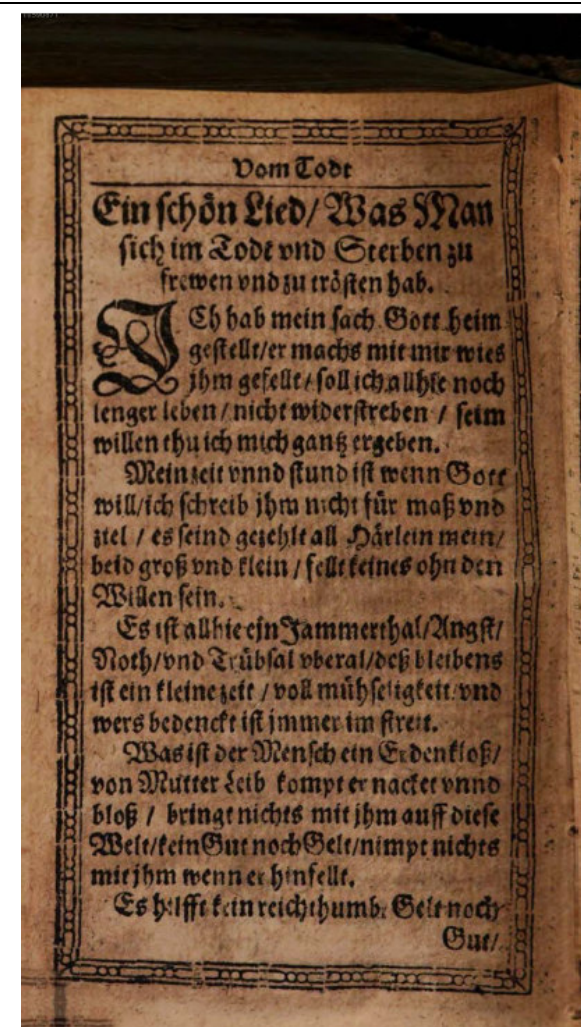 Vom Todt
Ein schön Lied/ Was Man
sich im Todt vnd Sterben zu
frewen vnd zu trösten hab.
ICh hab mein sach Gott heim
gestellt/er machs mit mir wies
jhm gefellt/ soll ich allhie noch
lenger leben / nicht widerstreben / seim
willen thu ich mich gantz ergeben.
Mein zeit vnnd stund ist wenn Gott
will/ich schreib jhm nicht für maß vnd
ziel / es seind gezehlt all Härlein mein/
beid groß vnd klein / fellt keines ohn den
Willen sein.
Es ist allhie ein Jammerthal/Angst/
Noth/vnd Trübsal vberal/deß bleibens
ist ein kleine zeit / voll mühseligkeit vnd
wers bedenckt ist jmmer im streit.
Was ist der Mensch ein Erdenkloß/
von Mutter Leib kompt er nacket vnnd
bloß / bringt nichts mit jhm auff diese
Welt/kein Gut noch Gelt/nimpt nichts
mit jhm wenn er hinfellt.
Es hilfft kein reichthumb/ Gelt noch
Gut/